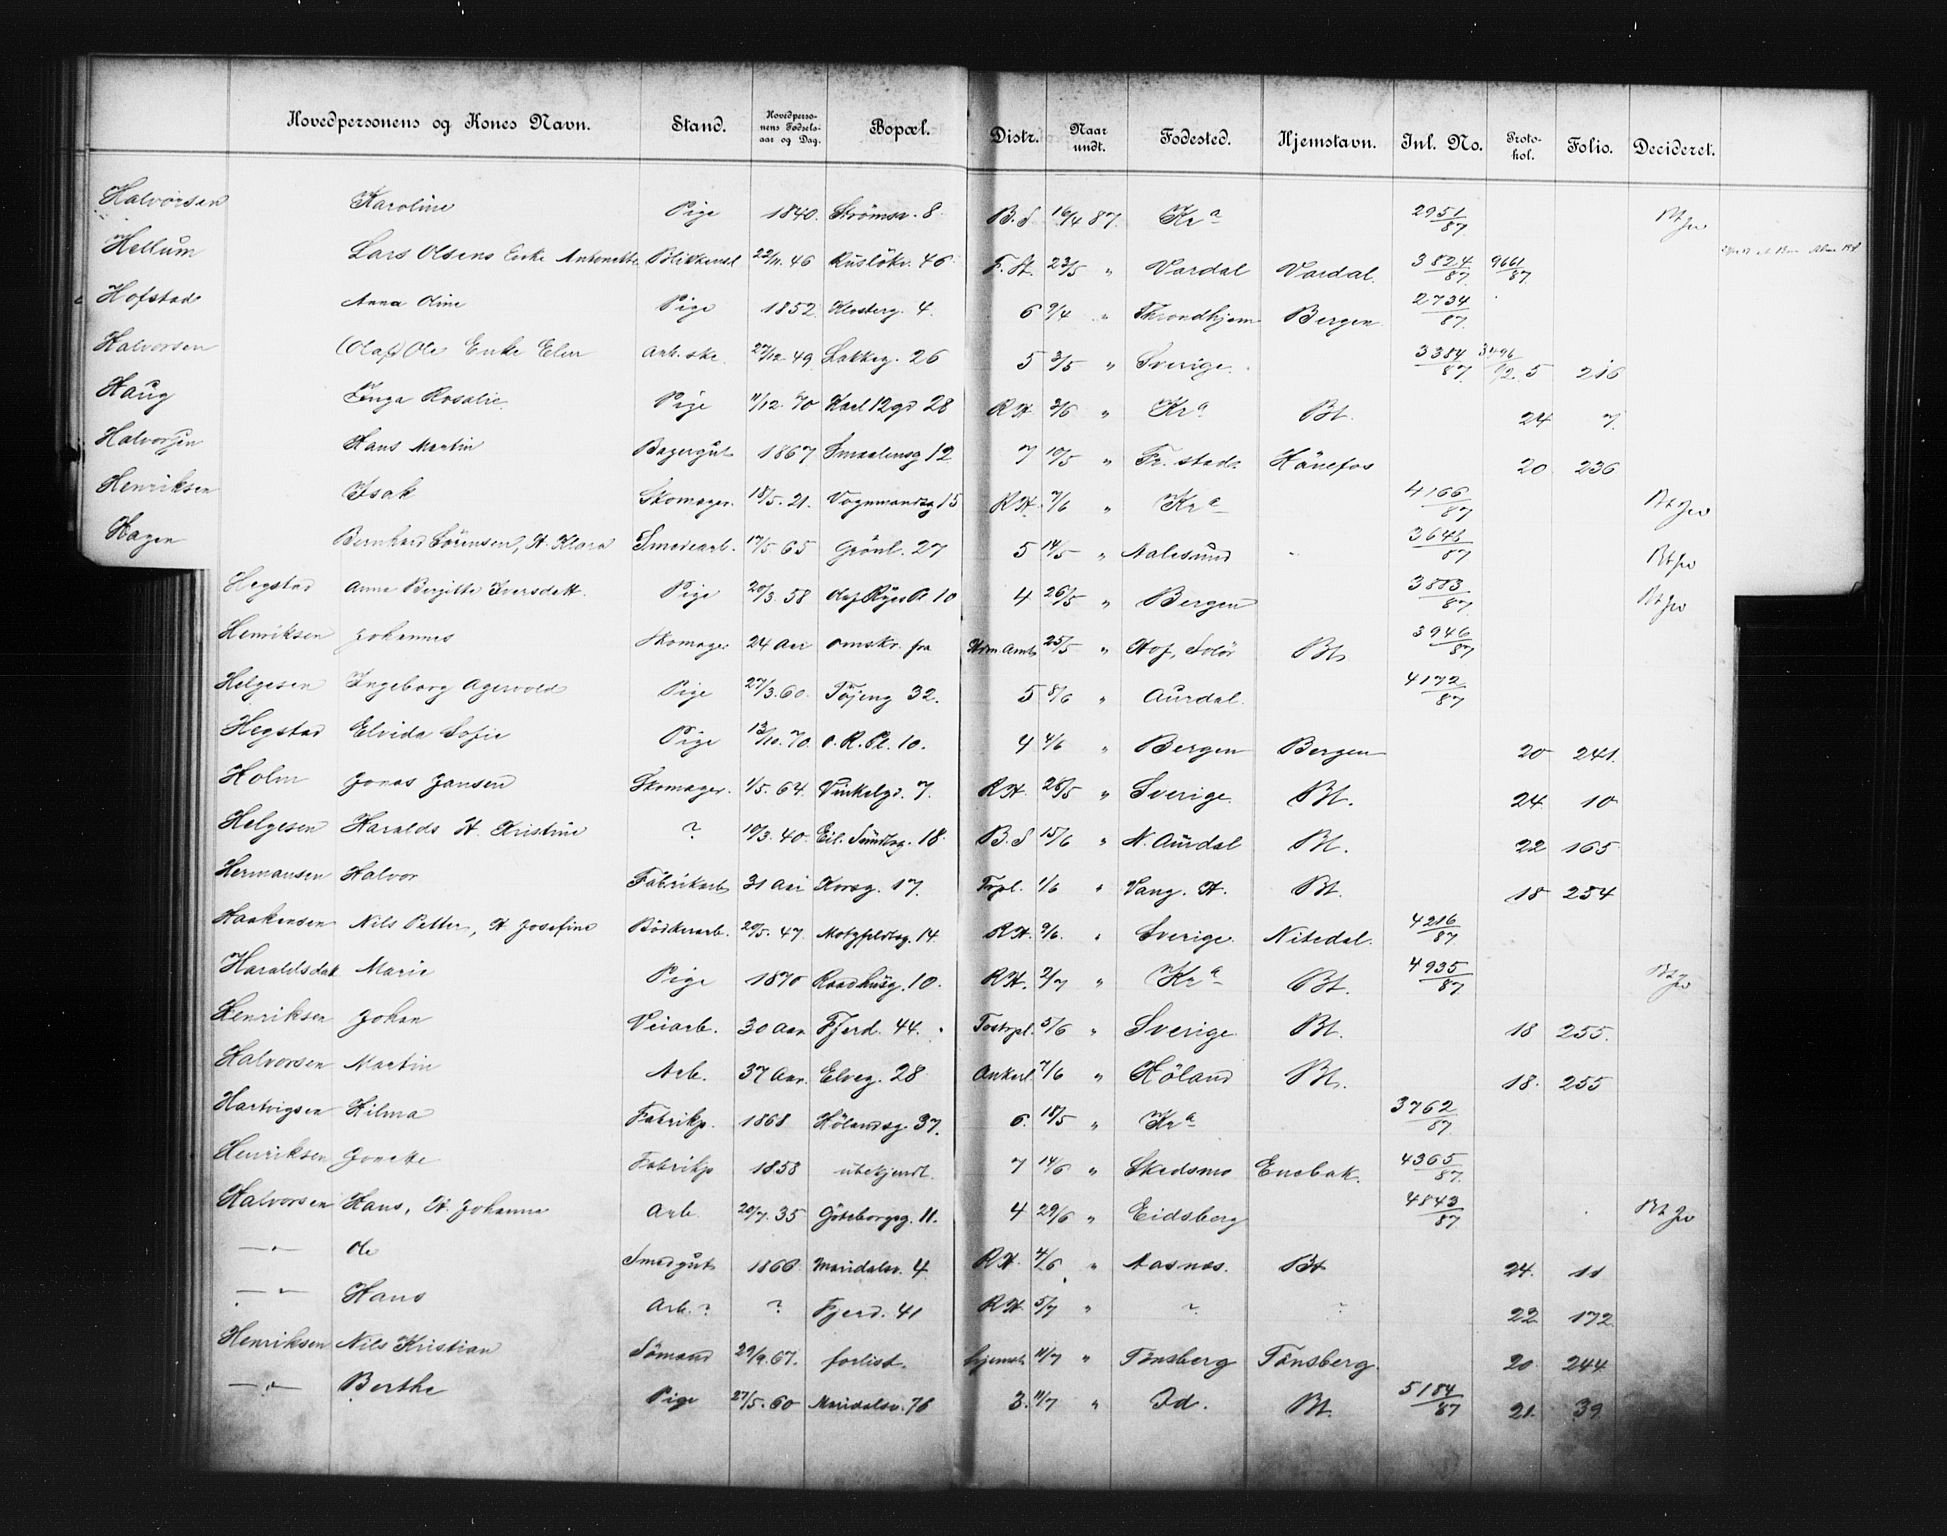 Hovedpersonens og Kones Navn. Stand. Hovedpersonens Fødselsaar og Dag. Bopæl. Distr. Naar undt. Fødested. Hjemstavn. Inl. No. Protokol. Folio. Decideret.
Halvorsen Karoline Pige 1840. Strömsv. 8. B.S. 16/4 87. Kra 2951/87
Hellum Lars Olsens Enke Antonette 22/11. 46 Rusløkv. 46. F. St. 23/5 " Vardal Vardal. 3824/87 9661/87
Hofstad Anna Oline Pige 1852. Klosterg. 4. 6 9/4 " Throndhjem Bergen 2734/87
Halvorsen (Olaf) Ole Enke Elen Arb. ske. 27/12. 49 Lakkeg. 26 5 3/5 " Sverige. 3384/87 5 216
Haug Inga Rosalie Pige 11/12. 70 Karl 12 gd 28 R.H. 3/6 " Kra Bt. 24 7.
Halvorsen Hans Martin Bagergut 1867 Smaalensg 12 7 10/5 " Fr. stad Hönefos 20 236
Henriksen Isak Skomager. 18/5. 21. Vognmandsg 15 R.H. 7/6 " Kra 4166/87
Hagen Bernhard Sörensen, H. Klara Smedearb. 17/5 65 Grönl. 27 5 14/5 " Aalesund
Hegstad Anne Birgitte Iversdatt. Pige 20/3. 58 Olaf Ryes Pl 10 4 26/5 " Bergen 3883/87
Henriksen Johannes Skomager 24 Aar omskr. fra Hedm. Amt 25/5 " Hof, Solör Bt. 3946/87
Helgesen Ingeborg Agervold Pige 27/3. 60. Töjeng 32. 5 8/6 " Aurdal. 4172/87
Hegstad Elvida Sofie Pige 13/10. 70. O. R. Pl. 10. 4 4/6 " Bergen Bergen 20 241.
Holm Jonas Jansen Skomager. 1/5. 64. Vinkelgd. 7. R.H. 28/5 " Sverige. Bt. 24 10
Helgesen Haralds H. Kristine ? 10/3. 40. Eil. Sundtsg. 18. B.S 15/6 " N. Aurdal Bt. 22 165
Hermansen Halvor Fabrikarb 31 Aar Korsg. 17. Trpl. 1/6 " Vang. H. Bt. 18 254
Haakensen Nils Petter, H Josefine Bödkerarb. 20/5. 47. Motzfeldtsg. 14. R.H. 9/6. " Sverige. Nitedal. 4216/87
Haraldsdat Marie Pige 1870 Raadhusg. 10. R.H. 2/7 " Kra Bt. 4935/87
Henriksen Johan Veiarb. 30 Aar Fjerd. 44. 5/6 " Sverige Bt. 18 255.
Halvorsen Martin Arb. 37 Aar. Elveg. 28 Ankerl. 7/6 " Höland Bt. 18. 255
Hartvigsen Hilma Fabrikp. 1868 Hölandsg. 37. 6. 18/5 " Kra 3762/87.
Henriksen Jonette Fabrikp 1858 ubekjendt. 7 14/6 " Skedsmo Enebak. 4365/87
Halvorsen Hans, H. Johanne Arb. 20/7. 35 Göteborgsg. 11. 4 29/6 " Eidsberg 4843/87
— " — Ole Smedgut 1866. Maridalsv. 4. R.H. 4/6 " Aasnæs. Bt 24. 11
— " — Hans Arb. ? ? Fjerd. 41 R.H. 5/7 " ? ? 22 172
Henriksen Nils Kristian Sömand 29/9. 67. forlist. hjemst. 11/7 " Tönsberg Tönsberg. 20. 244.
— " — Berthe Pige 27/5. 60 Maridalsv. 76 3. 11/7 " Id. Bt. 5184/87 21. 39